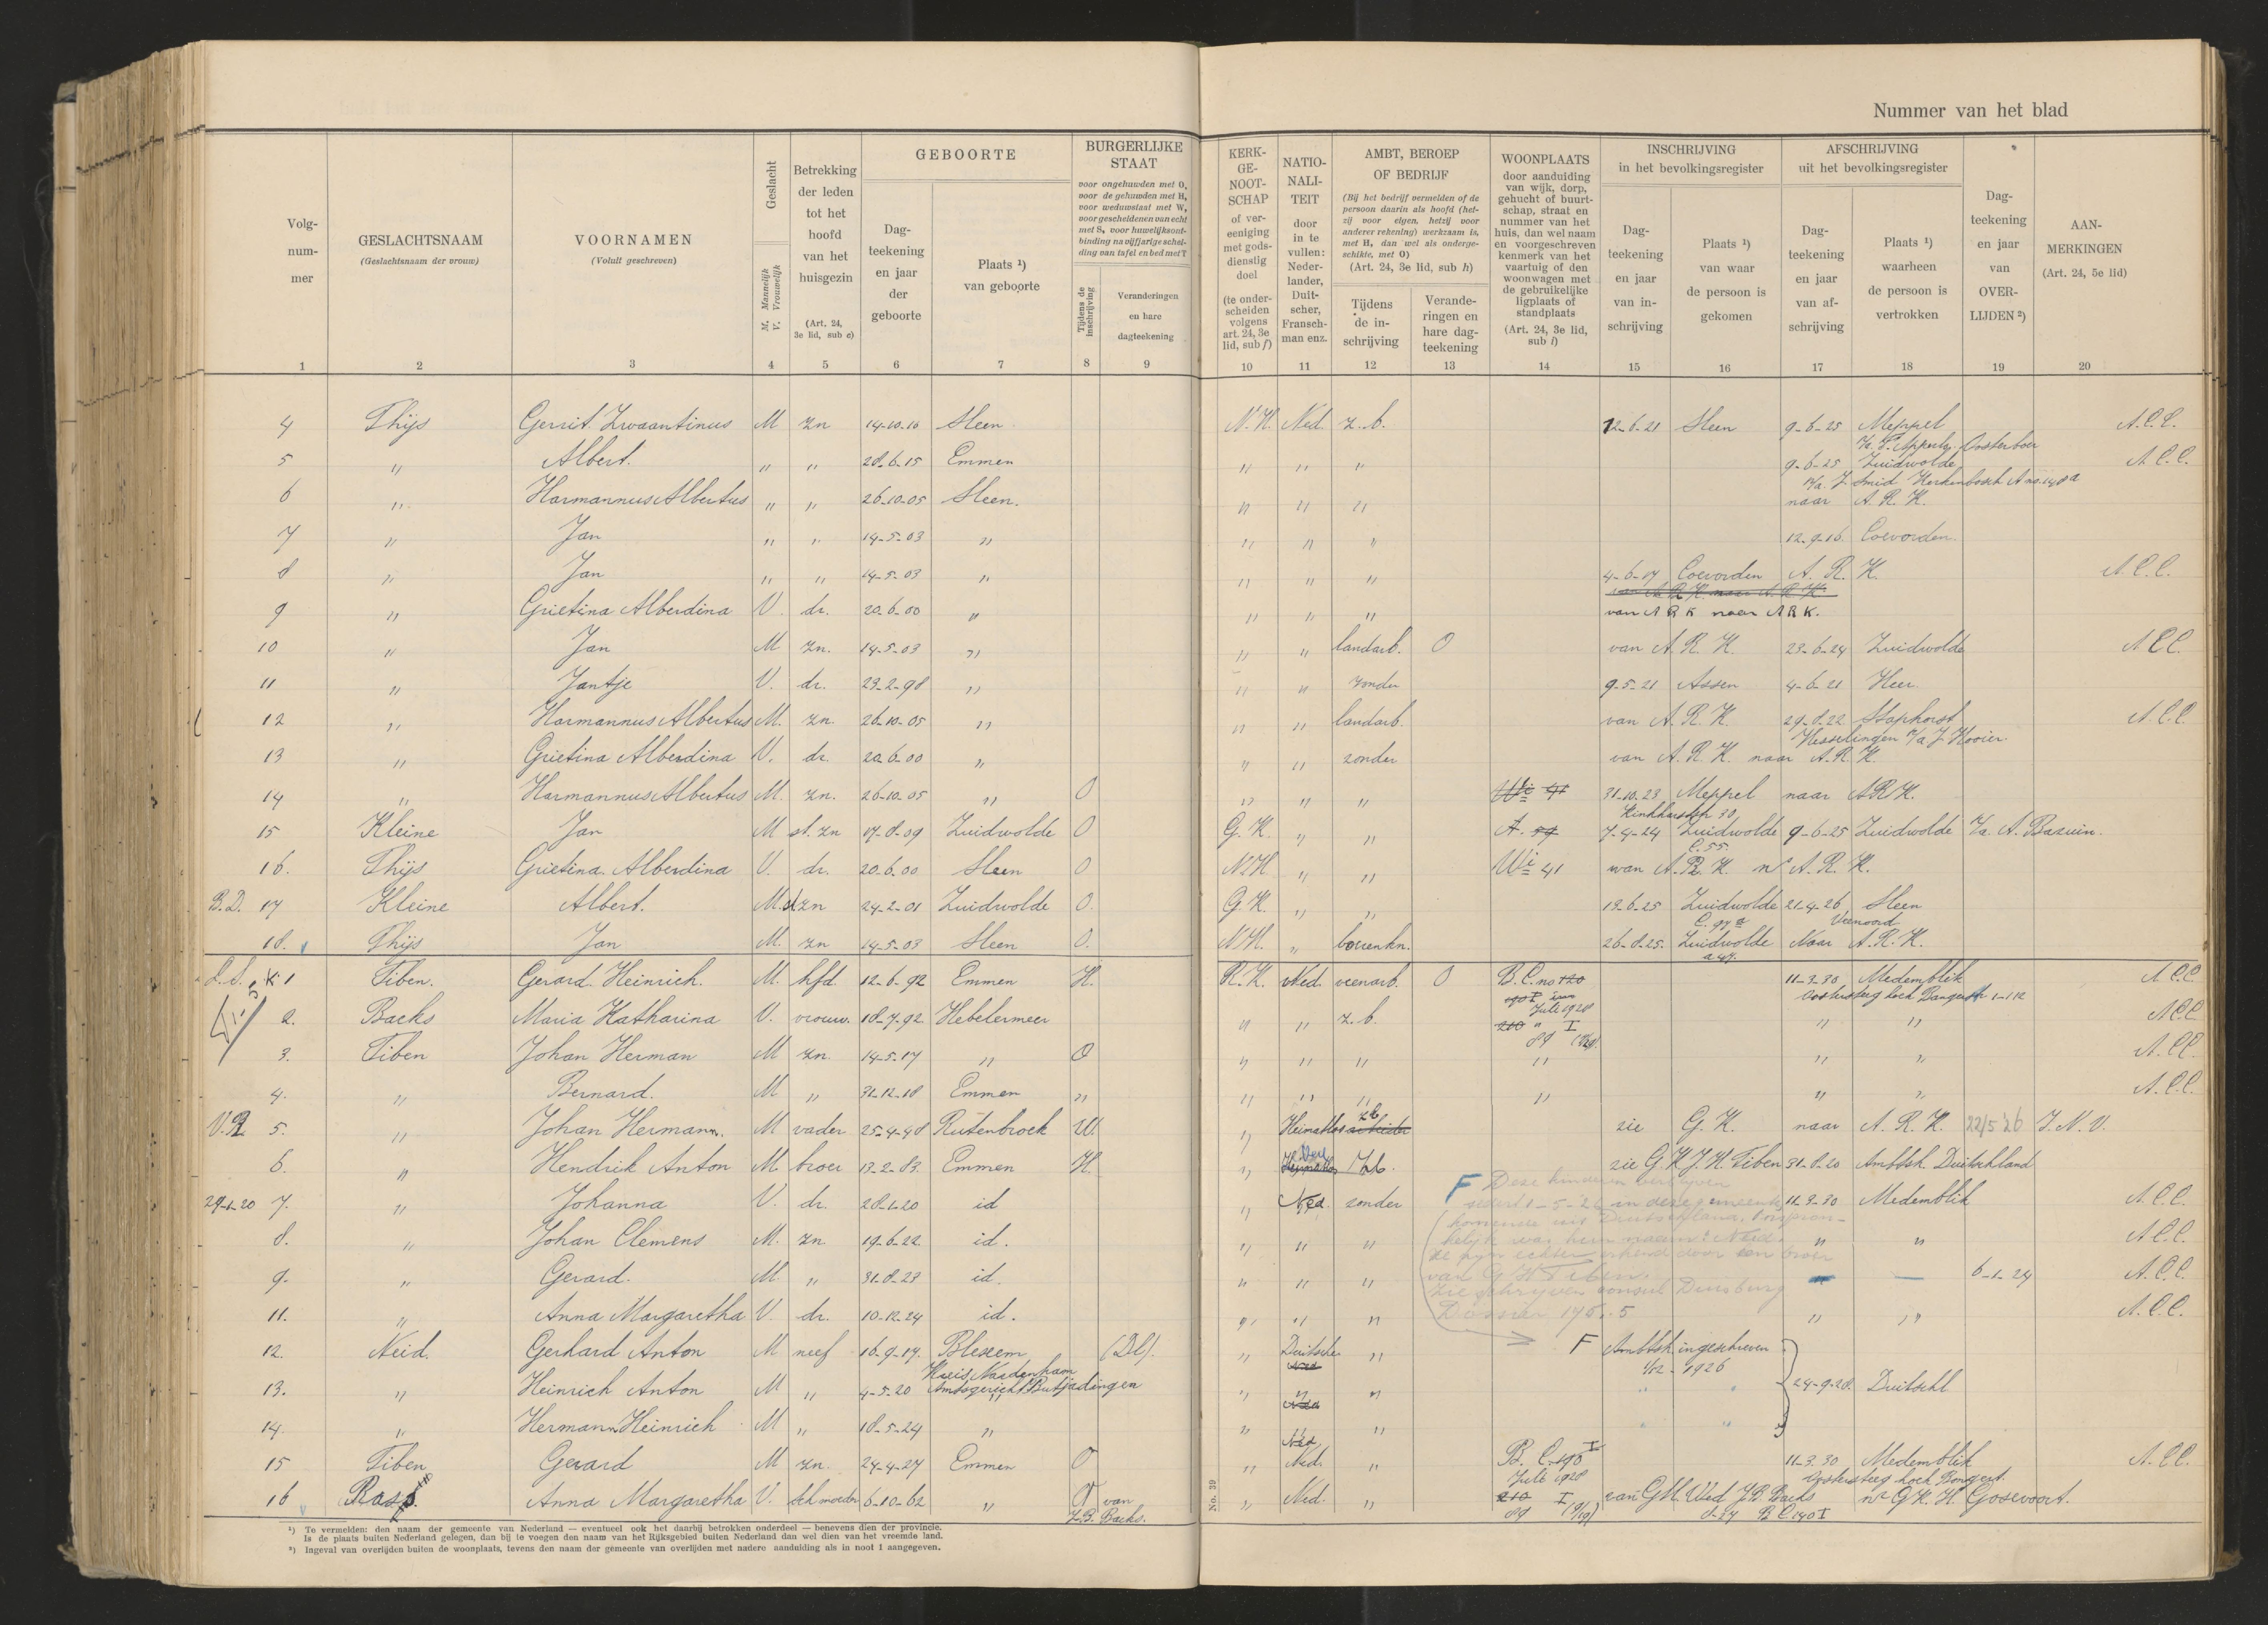 Nummer van het blad
Volg-nummer
GESLACHTSNAAM
(Geslachtsnaam der vrouw)
VOORNAMEN
(Voluit geschreven)
Geslacht
M. Mannelijk
V. Vrouwelijk
Betrekking der leden tot het hoofd van het huisgezin
(Art. 24, 3e lid, sub c)
GEBOORTE
Dag-teekening en jaar der geboorte
Plaats ¹) van geboorte
BURGERLIJKE STAAT
voor ongehuwden met O, voor de gehuwden met H, voor weduwstaat met W, voor gescheidenen van echt met S, voor huwelijksontbinding na vijfjarige scheiding van tafel en bed met T
Tijdens de inschrijving
Veranderingen en hare dagteekening
KERK-GE-NOOT-SCHAP
of vereeniging met godsdienstig doel
(te onderscheiden volgens art. 24, 3e lid, sub f)
NATIO-NALI-TEIT
door in te vullen: Nederlander, Duitscher, Franschman enz.
AMBT, BEROEP OF BEDRIJF
(Bij het bedrijf vermelden of de persoon daarin als hoofd (hetzij voor eigen, hetzij voor anderer rekening) werkzaam is, met H, dan wel als ondergeschikte, met O)
(Art. 24, 3e lid, sub h)
Tijdens de inschrijving
Veranderingen en hare dagteekening
WOONPLAATS
door aanduiding van wijk, dorp, gehucht of buurtschap, straat en nummer van het huis, dan wel naam en voorgeschreven kenmerk van het vaartuig of den woonwagen met de gebruikelijke ligplaats of standplaats
(Art. 24, 3e lid, sub i)
INSCHRIJVING in het bevolkingsregister
Dag-teekening en jaar van inschrijving
Plaats ¹) van waar de persoon is gekomen
AFSCHRIJVING uit het bevolkingsregister
Dag-teekening en jaar van afschrijving
Plaats ¹) waarheen de persoon is vertrokken
Dag-teekening en jaar van OVER-LIJDEN ²)
AAN-MERKINGEN
(Art. 24, 5e lid)
1 2 3 4 5 6 7 8 9 10 11 12 13 14 15 16 17 18 19 20
4 Thijs Gerrit Zwaantinus M zn 14-10-10 Sleen N.H. Ned. z.b. 12-6-21 Sleen 9-6-25 Meppel A.C.C.
5 " Albert. " " 28-6-15 Emmen " " " 9-6-25 Zuidwolde A.C.C.
6 " Harmannus Albertus " " 26-10-05 Sleen. " " " naar A.R.K.
7 " Jan " " 14-5-03 " " " " 12-9-16 Coevorden.
8 " Jan " " 14-5-03 " " " " 4-6-17 Coevorden A.R.K. A.C.C.
9 " Grietina Alberdina V. dr. 20-6-00 " " " " van A R K naar A R K.
10 " Jan M zn. 14-5-03 " " " landarb. O van A.R.K. 23-6-24 Zuidwolde A.C.C.
11 " Jantje V. dr. 23-2-98 " " " zonder 9-5-21 Assen 4-6-21 Heer
12 " Harmannus Albertus M. zn. 26-10-05 " " " landarb. van A.R.K. 29-8-22 Staphorst A.C.C.
13 " Grietina Alberdina V. dr. 20-6-00 " " " zonder van A.R.K. naar A.R.K.
14 " Harmannus Albertus M. zn. 26-10-05 " O " " " 31-10-23 Meppel naar A.R.K.
15 Kleine Jan M st. zn 17-8-09 Zuidwolde O G.K. " " A. 59 7-4-24 Zuidwolde 9-6-25 Zuidwolde v/a. A. Bazuin.
16. Thijs Grietina Alberdina V. dr. 20-6-00 Sleen O N.H. " " Wi 41 van A.R.K. nr A.R.K.
B.D. 17 Kleine Albert. M. st zn 24-2-01 Zuidwolde O. G.K. " " 19-6-25 Zuidwolde 21-4-26 Sleen
Veenoord
18. Thijs Jan M. zn 14-5-03 Sleen O. N.H. " boerenkn. 26-8-25. Zuidwolde Naar A.R.K.
1 Tiben. Gerard Heinrich. M. hfd. 12-6-92 Emmen H. R.K. Ned. veenarb. O B.C. no 120 11-3-30 Medemblik A.C.C.
2. Backs Maria Katharina V. vrouw. 18-7-92 Hebelermeer " " z.b. Juli 1928 " " A.C.C.
3. Tiben Johan Herman M zn. 14-5-17 " O " " " " " " A.C.C.
4. " Bernard. M " 31-12-18 Emmen " " " " " " " A.C.C.
5. " Johan Hermann. M vader 25-4-48 Rütenbrock W. " Heimatlos zb arbeider zie G.K. naar A.R.K. 22/5 '26 J.N.V.
6. " Hendrik Anton M. broer 13-2-83 Emmen H. " Heimatlos zb. zie G.K. J.H. Tiben 31-8-20 Ambtsh. Duitschland
29-1-20 7. " Johanna V. dr. 28-1-20 id " Ned. zonder 11-3-30 Medemblik A.C.C.
8. " Johan Clemens M. zn 19-6-22 id. " " " " " A.C.C.
9. " Gerard. M. " 31-8-23 id. " " " 6-1-24 A.C.C.
11. " Anna Margaretha V. dr. 10-12-24 id. " " " " " A.C.C.
F Deze kinderen verblijven
sedert 1-5-'26 in deze gemeente,
komende uit Duitschland. Oorspron-
kelijk was hun naam: Neid.
Ze zijn echter erkend door een broer
van G H Tiben.
Zie schrijven consul Duisburg
Dossier
12. Neid. Gerhard Anton M neef 16-9-17. Blexem (Dl). " Duitscher " F Ambtsh ingeschreven
Kreis Nordenham 1/12-1926
13. " Heinrich Anton M " 4-5-20 Amtsgericht Butjadingen " " " 24-9-28 Duitschl
14. " Hermann Heinrich M " 18-5-24 " " "
15 Tiben Gerard M zn. 24-4-27 Emmen O " Ned. " B.C. 190 I 11-3-30 Medemblik A.C.C.
16 Anna Margaretha V. sch moeder 6-10-62 " van " Ned. " Juli 1928 van GK. Wed J.B. Backs nr GK. H. Gosevoort.
J.B. Backs. B C 190 I
No. 39
¹) Te vermelden: den naam der gemeente van Nederland — eventueel ook het daarbij betrokken onderdeel — benevens dien der provincie.
Is de plaats buiten Nederland gelegen, dan bij te voegen den naam van het Rijksgebied buiten Nederland dan wel dien van het vreemde land.
²) Ingeval van overlijden buiten de woonplaats, tevens den naam der gemeente van overlijden met nadere aanduiding als in noot 1 aangegeven.